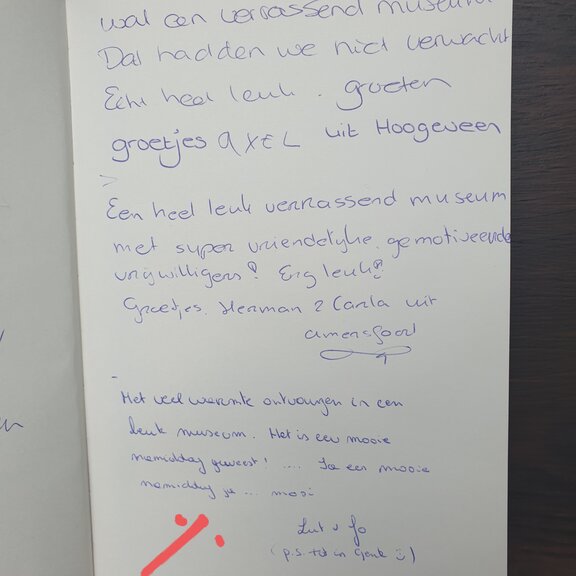 wat een verrassend museum.
Dat hadden we niet verwacht
Echt heel leuk. groeten
groetjes AXEL uit Hoogeveen
Een heel leuk verrassend museum
met super vriendelijke, gemotiveerde
vrijwilligers! Erg leuk!
Groetjes. Herman & Carla uit
Amersfoort
Met veel warmte ontvangen in een
leuk museum. Het is een mooie
namiddag geweest! .... Ja een mooie
namiddag ja ... mooi
Lut & Jo
(p.s. tot in Genk :))